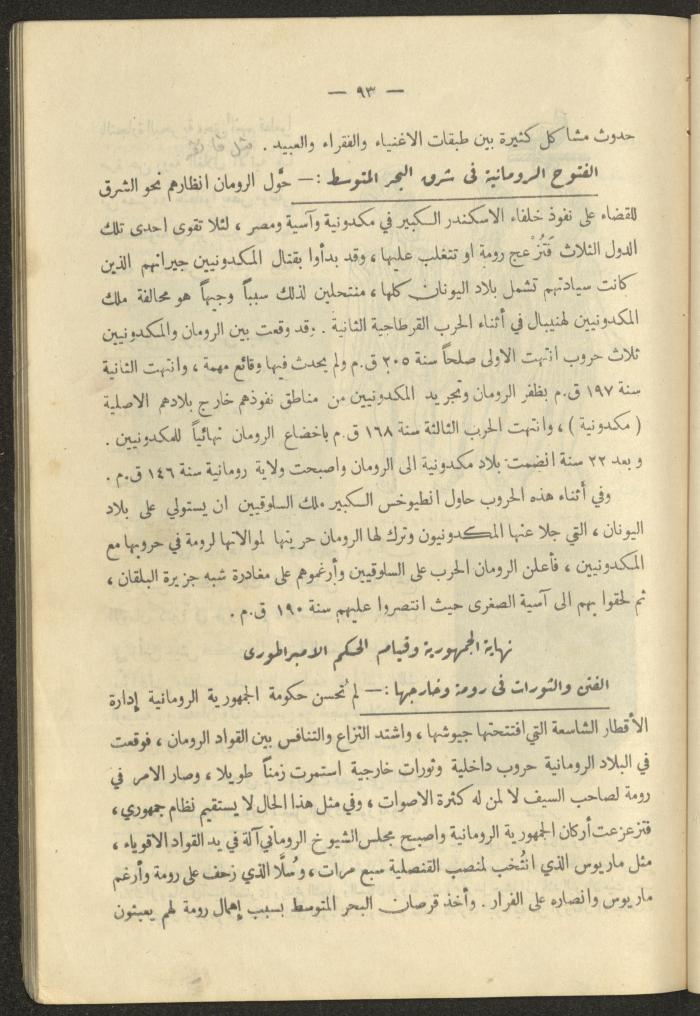 — ٩٣ —
حدوث مشاكل كثيرة بين طبقات الاغنياء والفقراء والعبيد .
الفتوح الرومانية في شرق البحر المتوسط : — حوَّل الرومان انظارهم نحو الشرق
للقضاء على نفوذ خلفاء الاسكندر الكبير في مكدونية وآسية ومصر ، لئلا تقوى احدى تلك
الدول الثلاث فَتُزْعج رومة او تتغلب عليها ، وقد بدأوا بقتال المكدونيين جيرانهم الذين
كانت سيادتهم تشمل بلاد اليونان كلها ، منتحلين لذلك سبباً وجيهاً هو محالفة ملك
المكدونيين لهنيبال في أثناء الحرب القرطاجية الثانية . وقد وقعت بين الرومان والمكدونيين
ثلاث حروب انتهت الاولى صلحاً سنة ٢٠٥ ق.م ولم يحدث فيها وقائع مهمة ، وانتهت الثانية
سنة ١٩٧ ق.م بظفر الرومان وتجريد المكدونيين من مناطق نفوذهم خارج بلادهم الاصلية
( مكدونية ) ، وانتهت الحرب الثالثة سنة ١٦٨ ق.م باخضاع الرومان نهائياً للمكدونيين .
وبعد ٢٢ سنة انضمت بلاد مكدونية الى الرومان واصبحت ولاية رومانية سنة ١٤٦ ق.م .
وفي أثناء هذه الحروب حاول انطيوخس الكبير ملك السلوقيين ان يستولي على بلاد
اليونان ، التي جلا عنها المكدونيون وترك لها الرومان حريتها لموالاتها لرومة في حروبها مع
المكدونيين ، فأعلن الرومان الحرب على السلوقيين وأرغموهم على مغادرة شبه جزيرة البلقان ،
ثم لحقوا بهم الى آسية الصغرى حيث انتصروا عليهم سنة ١٩٠ ق.م .
نهاية الجمهورية وقيام الحكم الامبراطوري
الفتن والثورات في رومة وخارجها : — لم تُحسن حكومة الجمهورية الرومانية إدارة
الأقطار الشاسعة التي افتتحتها جيوشها ، واشتد النزاع والتنافس بين القواد الرومان ، فوقعت
في البلاد الرومانية حروب داخلية وثورات خارجية استمرت زمناً طويلا ، وصار الامر في
رومة لصاحب السيف لا لمن له كثرة الاصوات ، وفي مثل هذا الحال لا يستقيم نظام جمهوري ،
فتزعزعت أركان الجمهورية الرومانية واصبح مجلس الشيوخ الروماني آلة في يد القواد الاقوياء ،
مثل ماريوس الذي انتُخب لمنصب القنصلية سبع مرات ، وسُلَّا الذي زحف على رومة وأرغم
ماريوس وانصاره على الفرار . وأخذ قرصان البحر المتوسط بسبب إهمال رومة لهم يعبثون